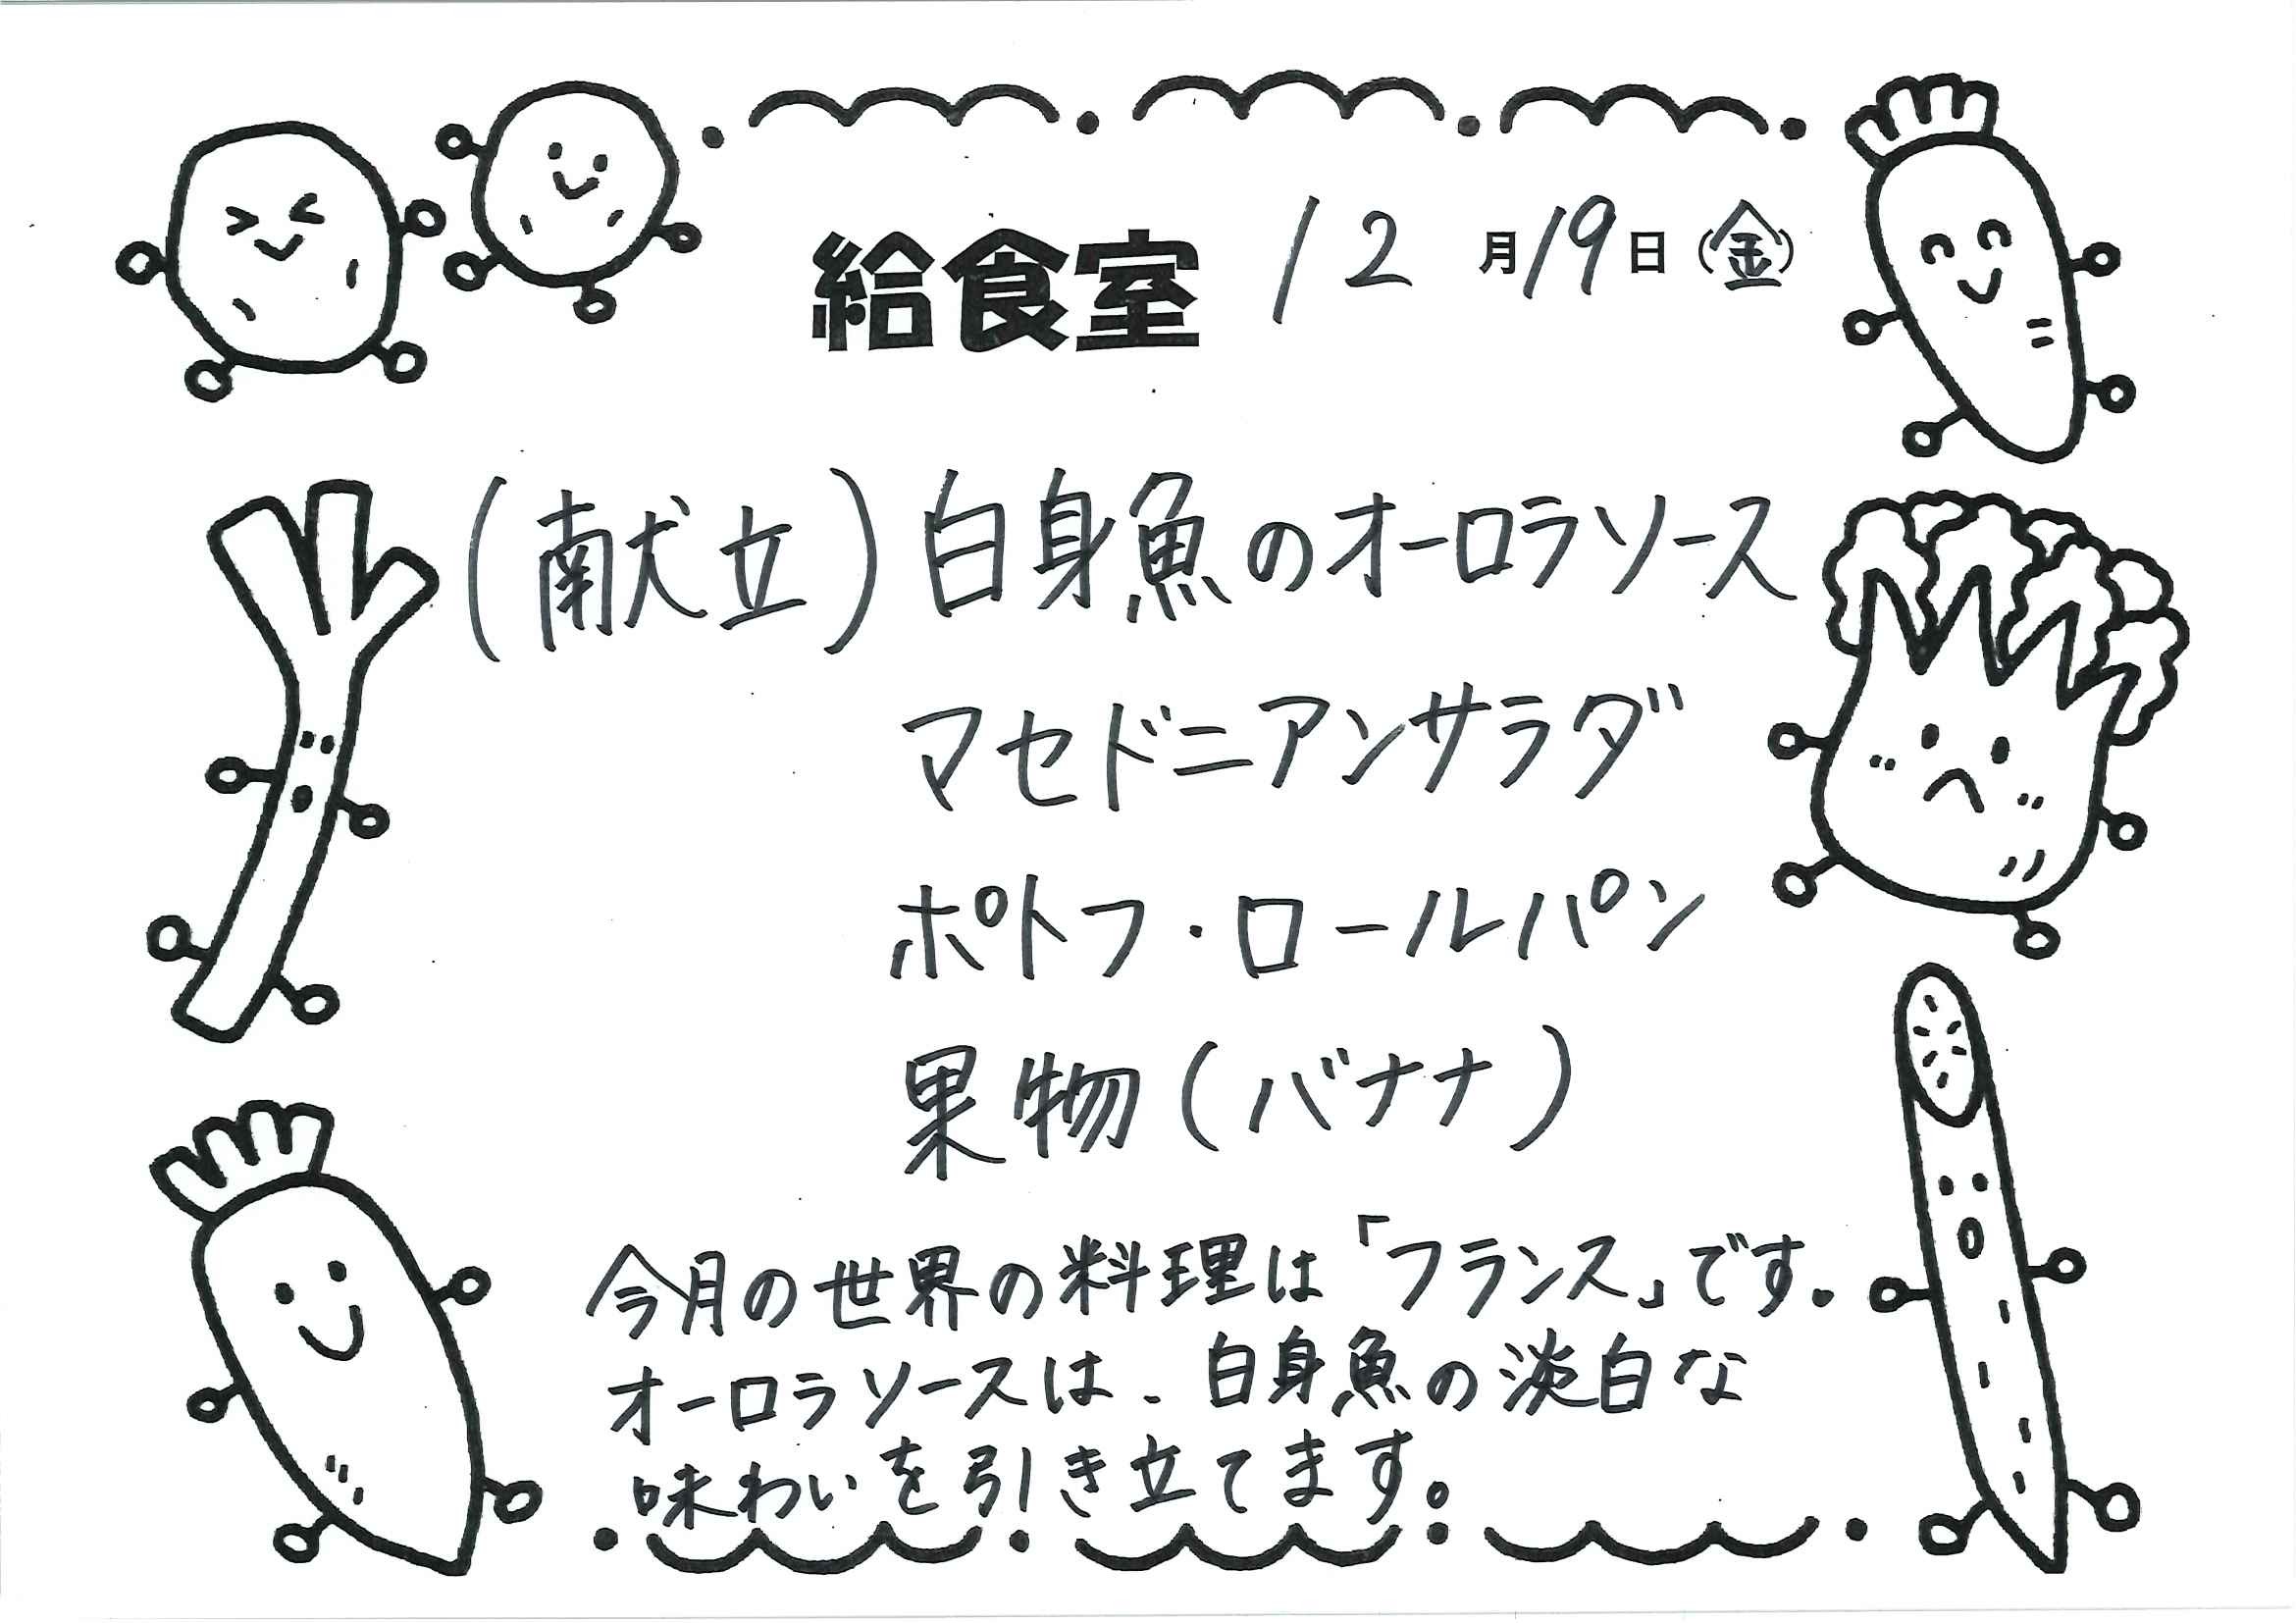 給食室 12月19日(金)
(献立)白身魚のオーロラソース
マセドニアンサラダ
ポトフ・ロールパン
果物(バナナ)
今月の世界の料理は「フランス」です。
オーロラソースは、白身魚の淡白な
味わいを引き立てます。